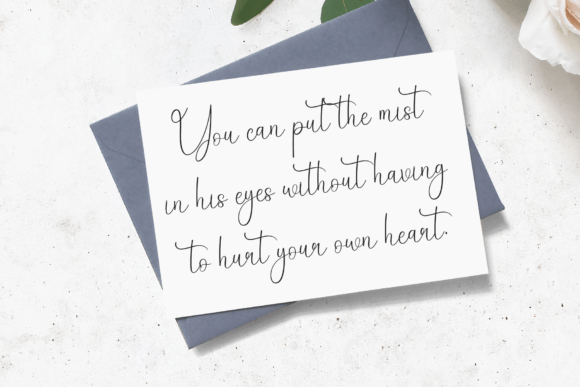 You can put the mist
in his eyes without having
to hurt your own heart.